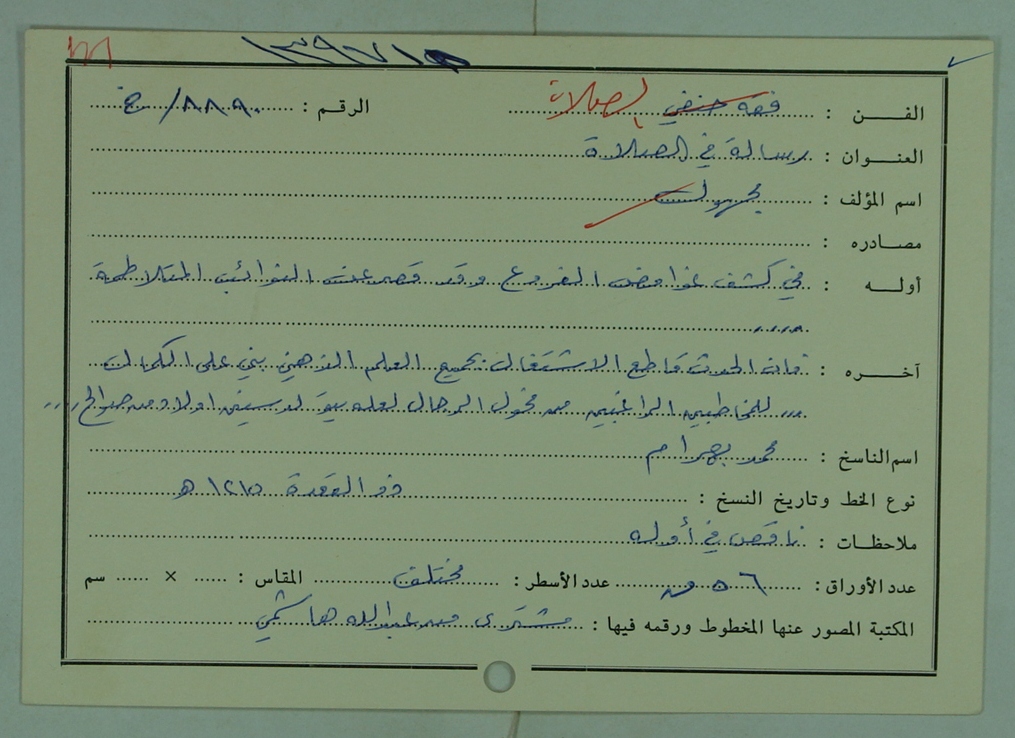 ١٣٩٧١
الفـن : فقه حنفي الصلاة الرقم : ٨٨٩٠/خ
العنـوان : رسالة في الصلاة
اسم المؤلف : مجهول
مصـادره :
أولـه : في كشف غوامض الفروع وقد قصر عن النوائب المتلاطمة
....
آخـره : فان الحدث قاطع الاشتغال بجميع العلم الذهني بني على الكمال
... للخاطبين الراغبين من فحول الرجال لعله اولاد من صالح ....
اسم الناسخ : محمد بهرام
نوع الخط وتاريخ النسخ : ذو القعدة ١٢١٥ هـ
ملاحظـات : ناقص في أوله
عدد الأوراق : ٥٦ عدد الأسطر : مختلف المقاس : ...... × ...... سم
المكتبة المصور عنها المخطوط ورقمه فيها : مشترى من عبدالله هاشمي